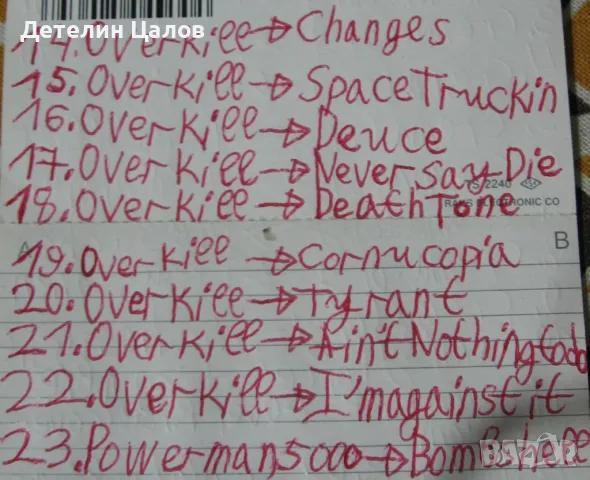 Детелин Цалов
14. Overkill → Changes
15. Overkill → Space Truckin
16. Overkill → Deuce
17. Overkill → Never say Die
S 2240
18. Overkill → Death Tone
ELECTRONIC CO
B
19. Overkill → Cornucopia
20. Overkill → Tyrant
21. Overkill → Ain't Nothing to do
22. Overkill → I'm against it
23. Powerman 5000 → Bombshell